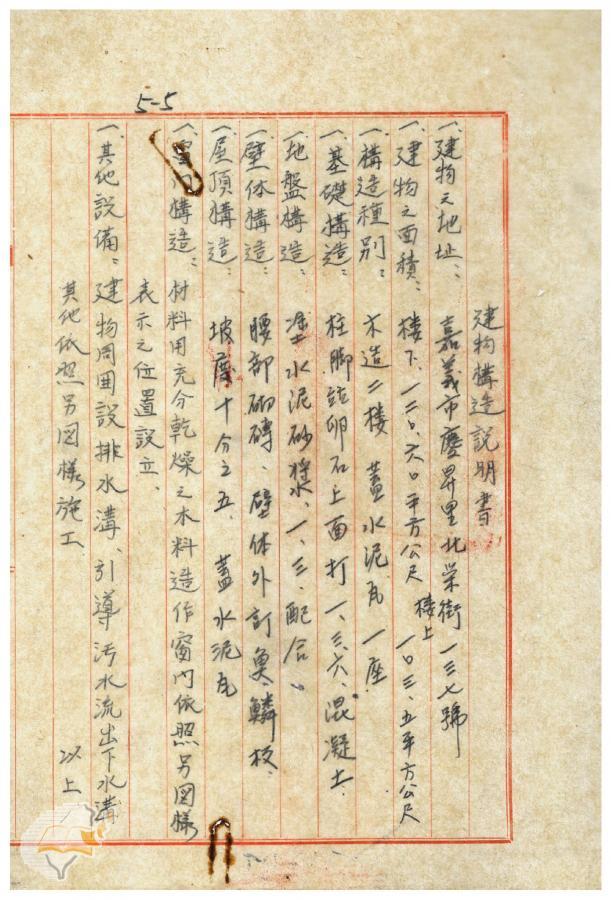 5-5
建物構造說明書
一、建物之地址: 嘉義市慶昇里北榮街一三七號
一、建物之面積: 樓下、一二〇、六〇平方公尺 樓上 一〇三、五平方公尺
一、構造種別: 木造二樓 蓋水泥瓦一座
一、基礎構造: 柱脚 卵石上面打一、三、六、混凝土
一、地盤構造: 塗水泥砂漿、一、三、配合。
一、壁体構造: 腰部砌磚、壁体外訂魚鱗板
一、屋頂構造: 坡度十分之五、蓋水泥瓦
一、窗門構造: 材料用充分乾燥之木料造作窗門依照另図様
表示之位置設立、
一、其他設備: 建物周囲設排水溝、引導汚水流出下水溝
其他依照另図様施工、 以上